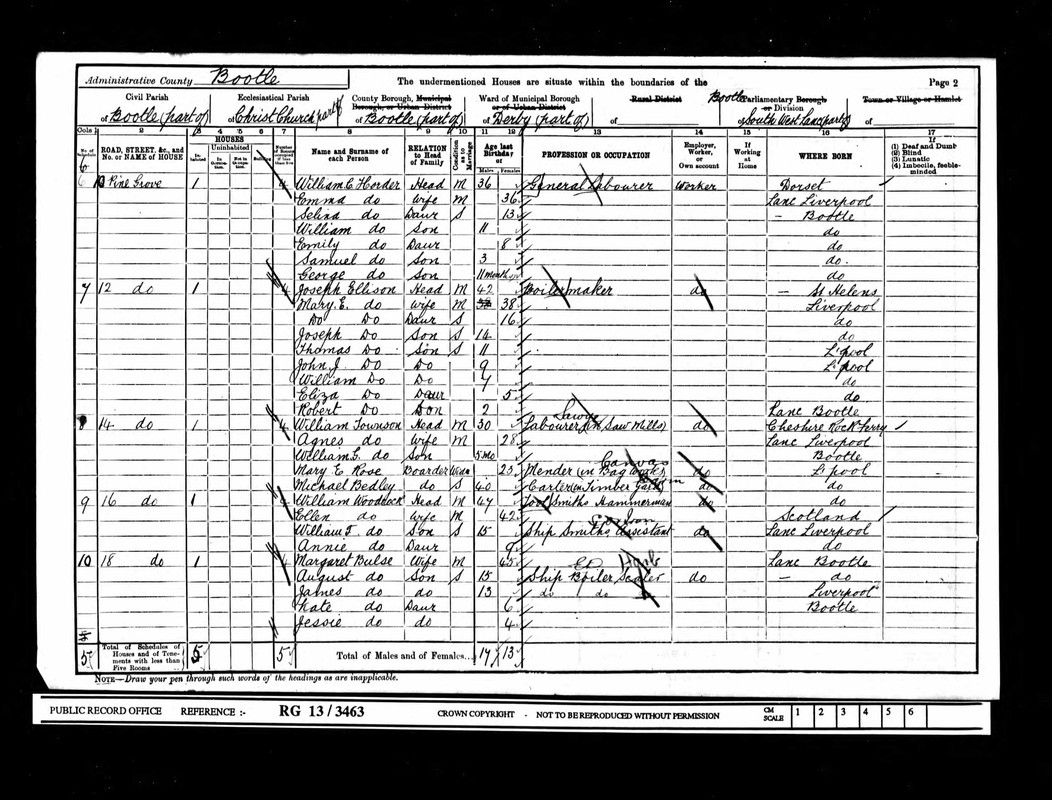 Administrative County Bootle
The undermentioned Houses are situate within the boundaries of the
Page 2
Civil Parish
of Bootle (part of)
Ecclesiastical Parish
of Christ Church part of
County Borough, Municipal Borough, or Urban District
of Bootle (part of)
Ward of Municipal Borough or of Urban District
of Derby (part of)
Rural District
of
Bootle Parliamentary Borough or Division
of South West Lanc (part of)
Town or Village or Hamlet
of
Cols 1 2 3 4 5 6 7 8 9 10 11 12 13 14 15 16 17
No. of Schedule
ROAD, STREET, &c., and No. or NAME of HOUSE
HOUSES
Inhabited
Uninhabited
In Occupation
Not in Occupation
Building
Name and Surname of each Person
RELATION to Head of Family
Condition as to Marriage
Age last Birthday of
Males Females
PROFESSION OR OCCUPATION
Employer, Worker, or Own account
If Working at Home
WHERE BORN
If (1) Deaf and Dumb (2) Blind (3) Lunatic (4) Imbecile, feeble-minded
6 10 Pine Grove 1 4 William C Horder Head M 36 General Labourer Worker Dorset
Emma do Wife M 36 Lanc Liverpool
Selina do Daur S 13 – Bootle
William do Son 11 do
Emily do Daur 8 do
Samuel do Son 3 do
George do Son 11 months do
7 12 do 1 4 Joseph Ellison Head M 42 Boiler maker do – St Helens
Mary. E. do Wife M 38 Liverpool
Do Do Daur S 16 do
Joseph Do Son S 14 do
Thomas Do Son S 11 L'pool
John J. Do Do 9 L'pool
William Do Do 7 do
Eliza Do Daur 5 do
Robert Do Son 2 Lanc Bootle
8 14 do 1 4 William Townson Head M 30 Labourer (in Saw Mills) do Cheshire Rock Ferry
Agnes do Wife M 28 Lanc Liverpool
William G. do Son 5 mo Bootle
Mary E Rose Boarder 23 Mender (in Bag Works) Canvas do L'pool
Michael Bedley do S 40 Carter (in Timber Yard) do do
9 16 do 1 4 William Woodcock Head M 47 Tool Smiths Hammerman do do
Ellen do Wife M 42 Scotland
William T. do Son S 15 Ship Smiths Assistant do Lanc Liverpool
Annie do Daur 9 do
10 18 do 1 4 Margaret Bulse Wife M 45 Lanc Bootle
August do Son S 15 Ship Boiler Scaler do – do
James do do 13 do do Liverpool
Kate do Daur 6 Bootle
Jessie do do 4
5 Total of Schedules of Houses and of Tenements with less than Five Rooms 5 5 Total of Males and of Females... 17 13
NOTE—Draw your pen through such words of the headings as are inapplicable.
PUBLIC RECORD OFFICE REFERENCE :- RG 13/3463 CROWN COPYRIGHT - NOT TO BE REPRODUCED WITHOUT PERMISSION CM SCALE 1 2 3 4 5 6